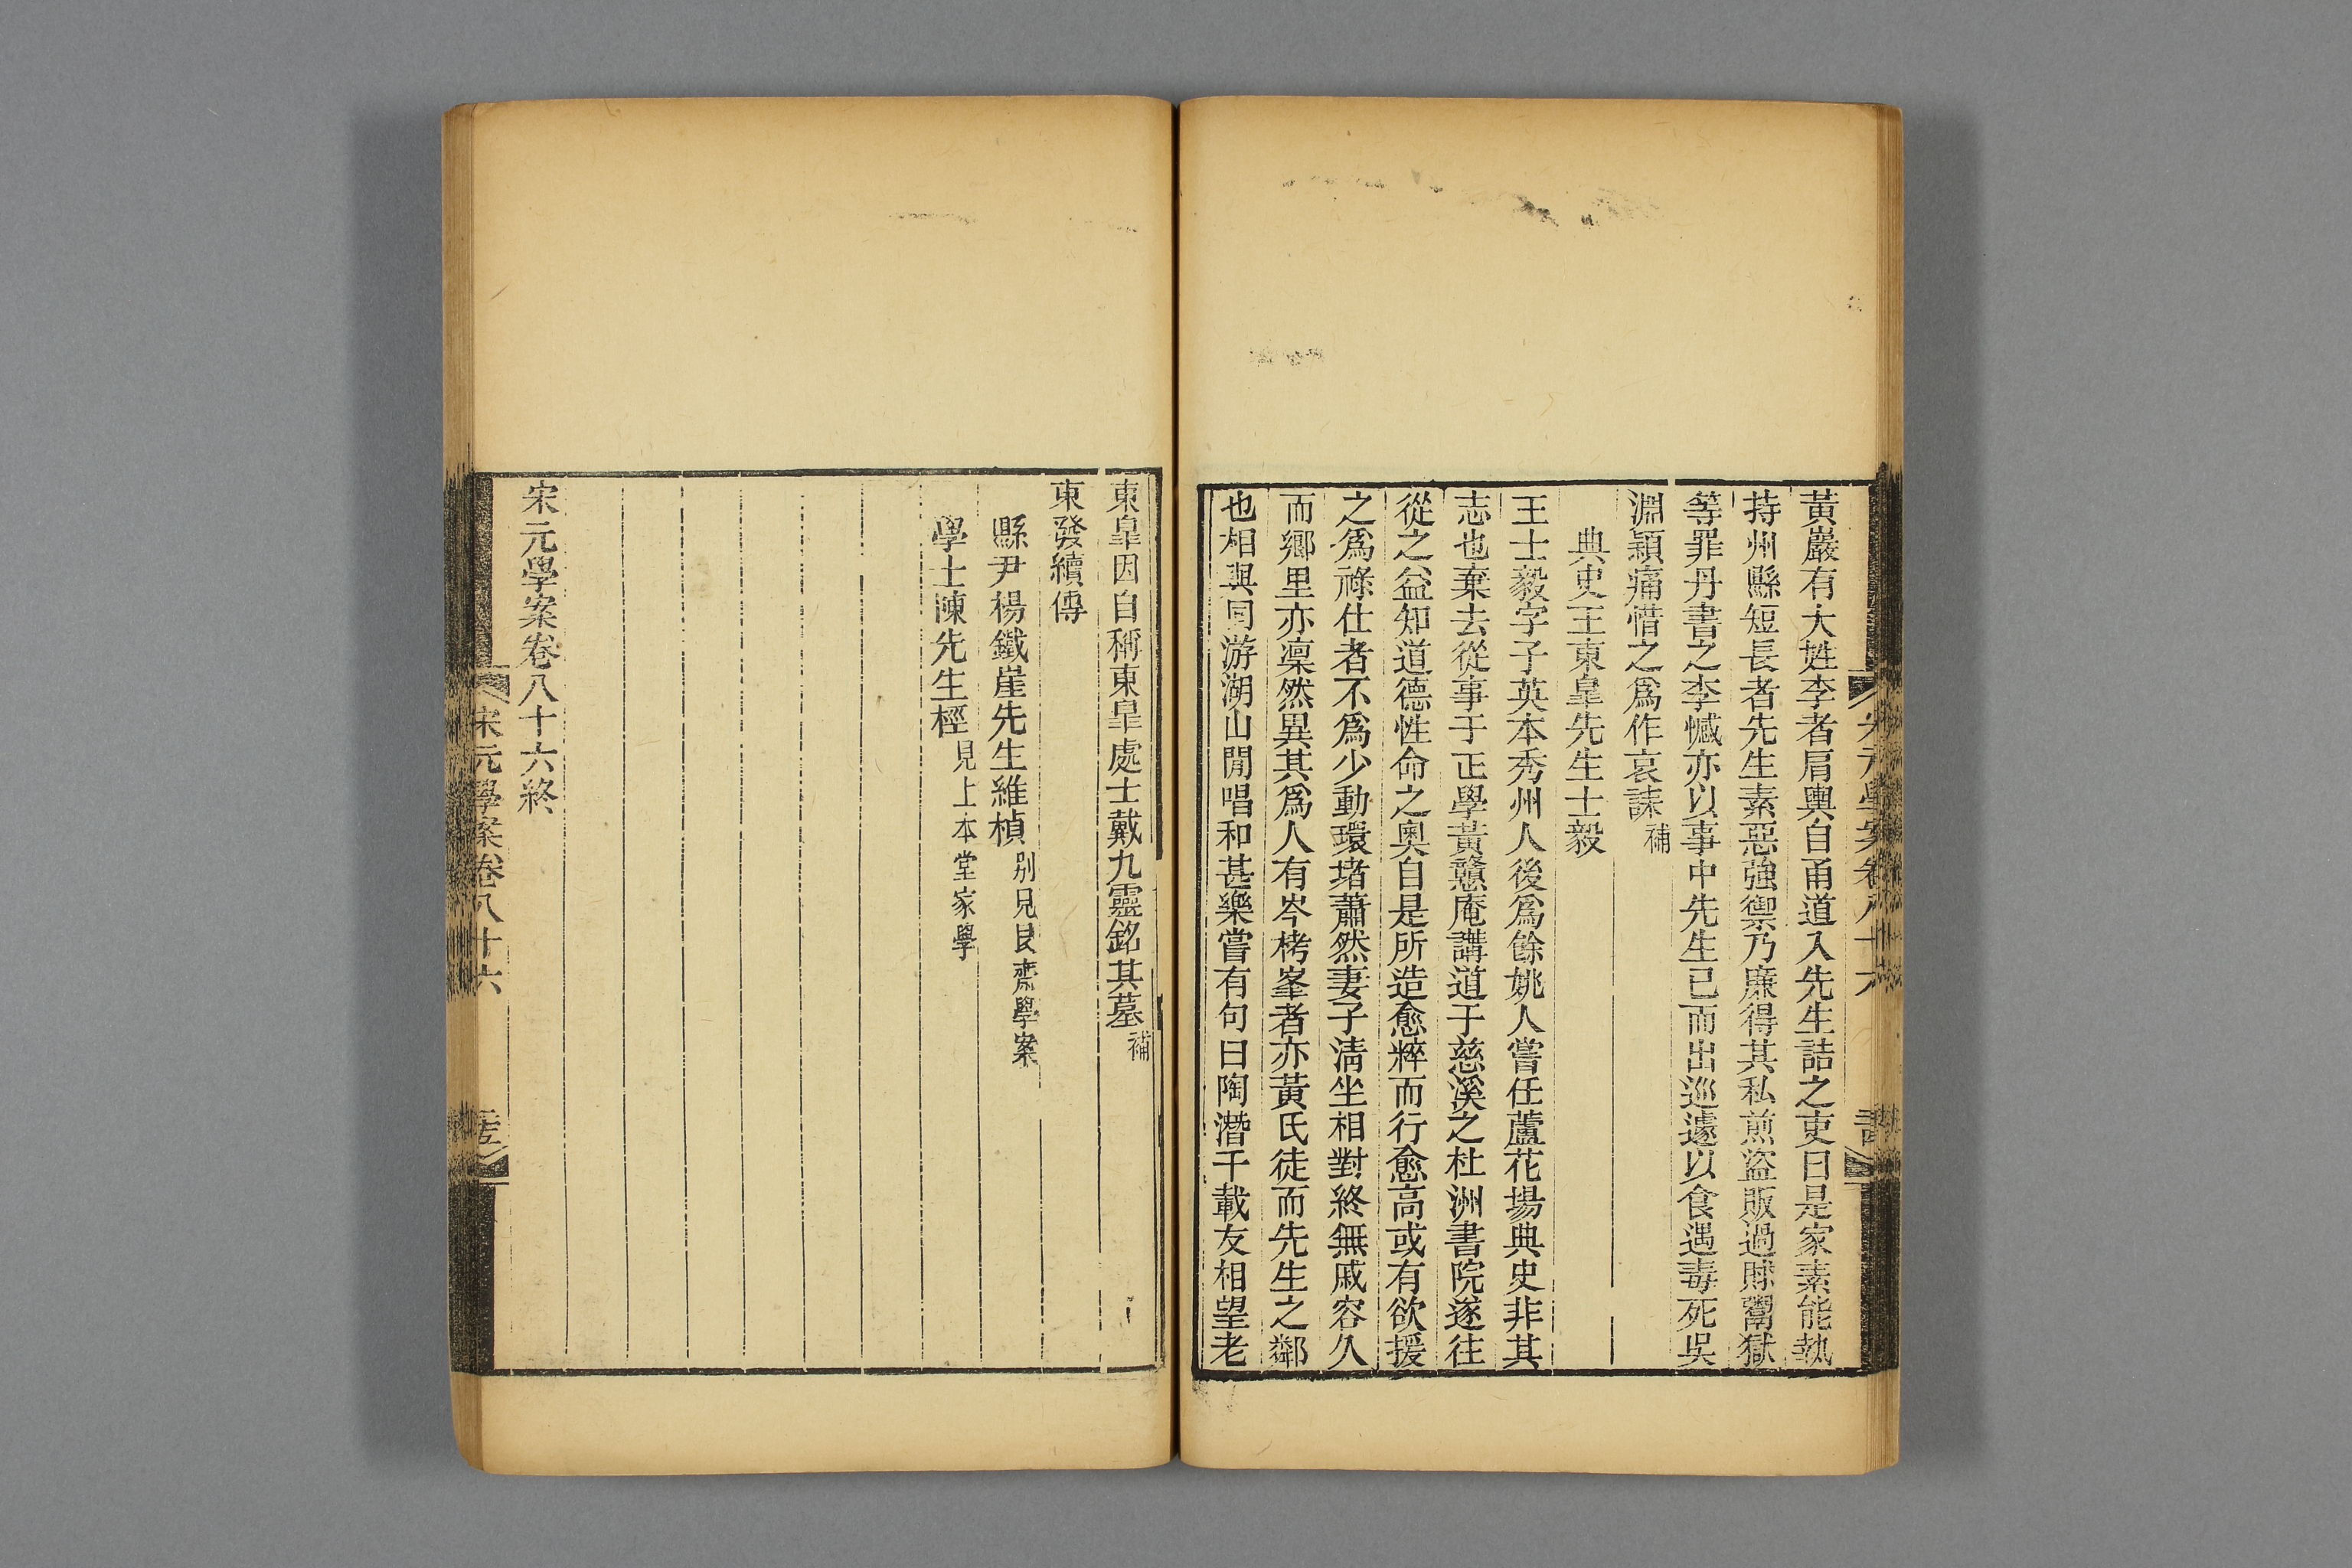 黃巖有大姓李者肩輿自甬道入先生詰之吏曰是家素能執
持州縣短長者先生素惡強禦乃廉得其私煎盜販過賕鬻獄
等罪丹書之李憾亦以事中先生已而出巡遽以食遇毒死吳
淵穎痛惜之爲作哀誄補
典史王東皐先生士毅
王士毅字子英本秀州人後爲餘姚人嘗任蘆花場典史非其
志也棄去從事于正學黃戇庵講道于慈溪之杜洲書院遂往
從之益知道德性命之奧自是所造愈粹而行愈高或有欲援
之爲祿仕者不爲少動環堵蕭然妻子淸坐相對終無戚容久
而鄉里亦凜然異其爲人有岑栲峯者亦黃氏徒而先生之鄰
也相與同游湖山閒唱和甚樂嘗有句曰陶潛千載友相望老
東皐因自稱東皐處士戴九靈銘其墓補
東發續傳
縣尹楊鐵崖先生維楨別見艮齋學案
學士陳先生樫見上本堂家學
宋元學案卷八十六終
宋元學案卷八十六